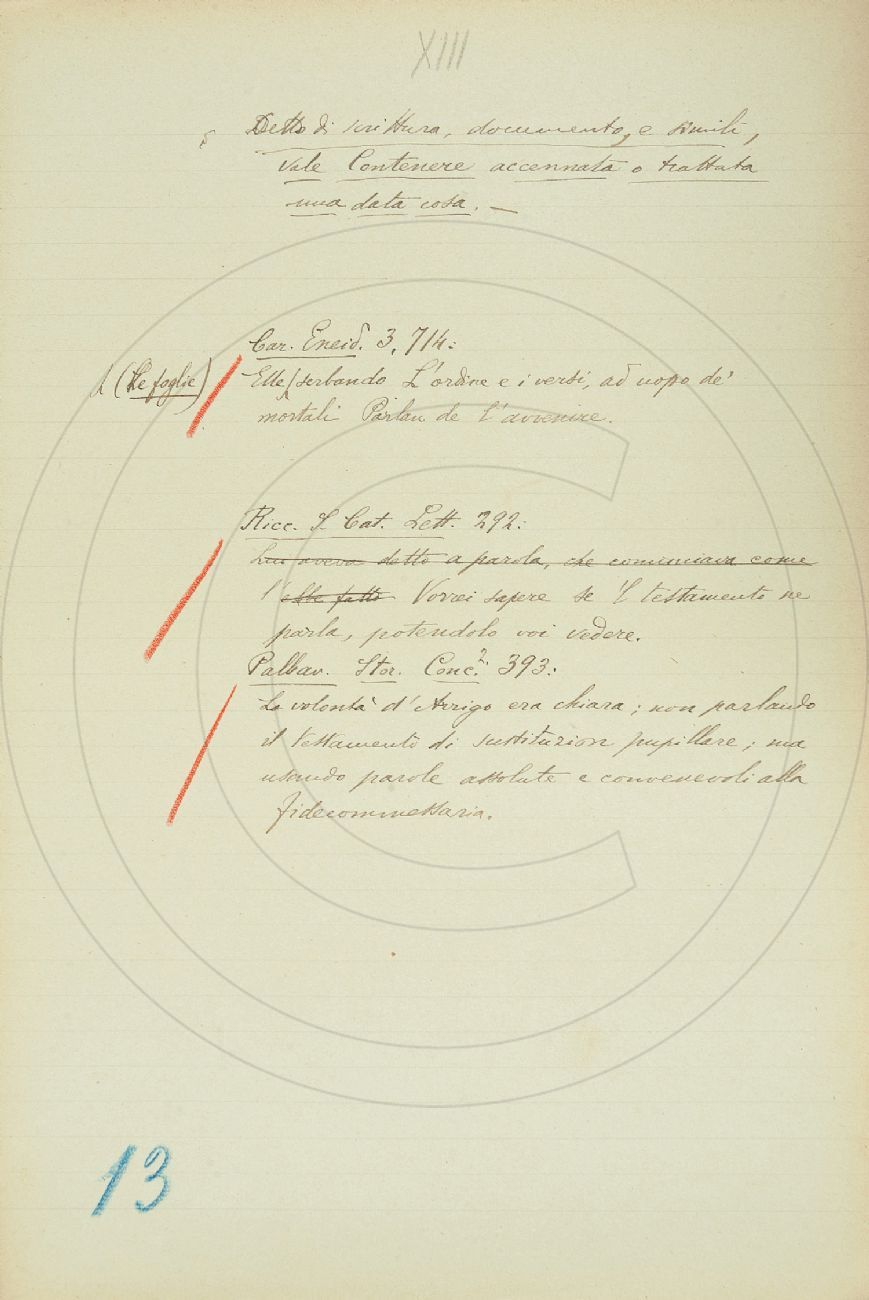 XIII
Detto di scrittura, documento, e simili,
vale Contenere accennata o trattata
una data cosa. —
Car. Eneid. 3, 714:
(le foglie)
Elle serbando L'ordine e i versi, ad uopo de'
mortali Parlan de l'avvenire.
Ricc. S. Cat. Lett. 292:
Lui aveva detto a parola, che cominciava come
l' ebbe fatto Vorrei sapere se 'l testamento ne
parla, potendolo voi vedere.
Pallav. Stor. Conc. 2. 393:
La volontà d'Arrigo era chiara; non parlando
il testamento di sustituzion pupillare; ma
usando parole assolute e convenevoli alla
fidecommessaria.
13